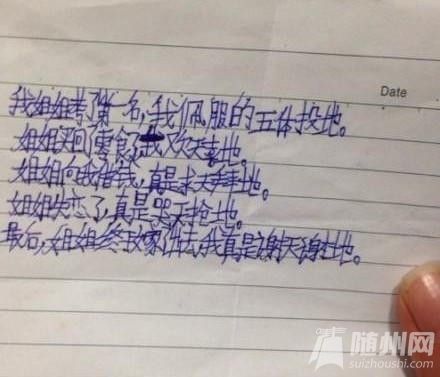 Date
我姐姐考了第一名,我佩服的五体投地。
姐姐买回零食了我欢天喜地。
姐姐向我借钱,真是求天拜地。
姐姐失恋了,真是哭天抢地。
最后,姐姐终于嫁出去,我真是谢天谢地。
随州网
suizhoushi.com